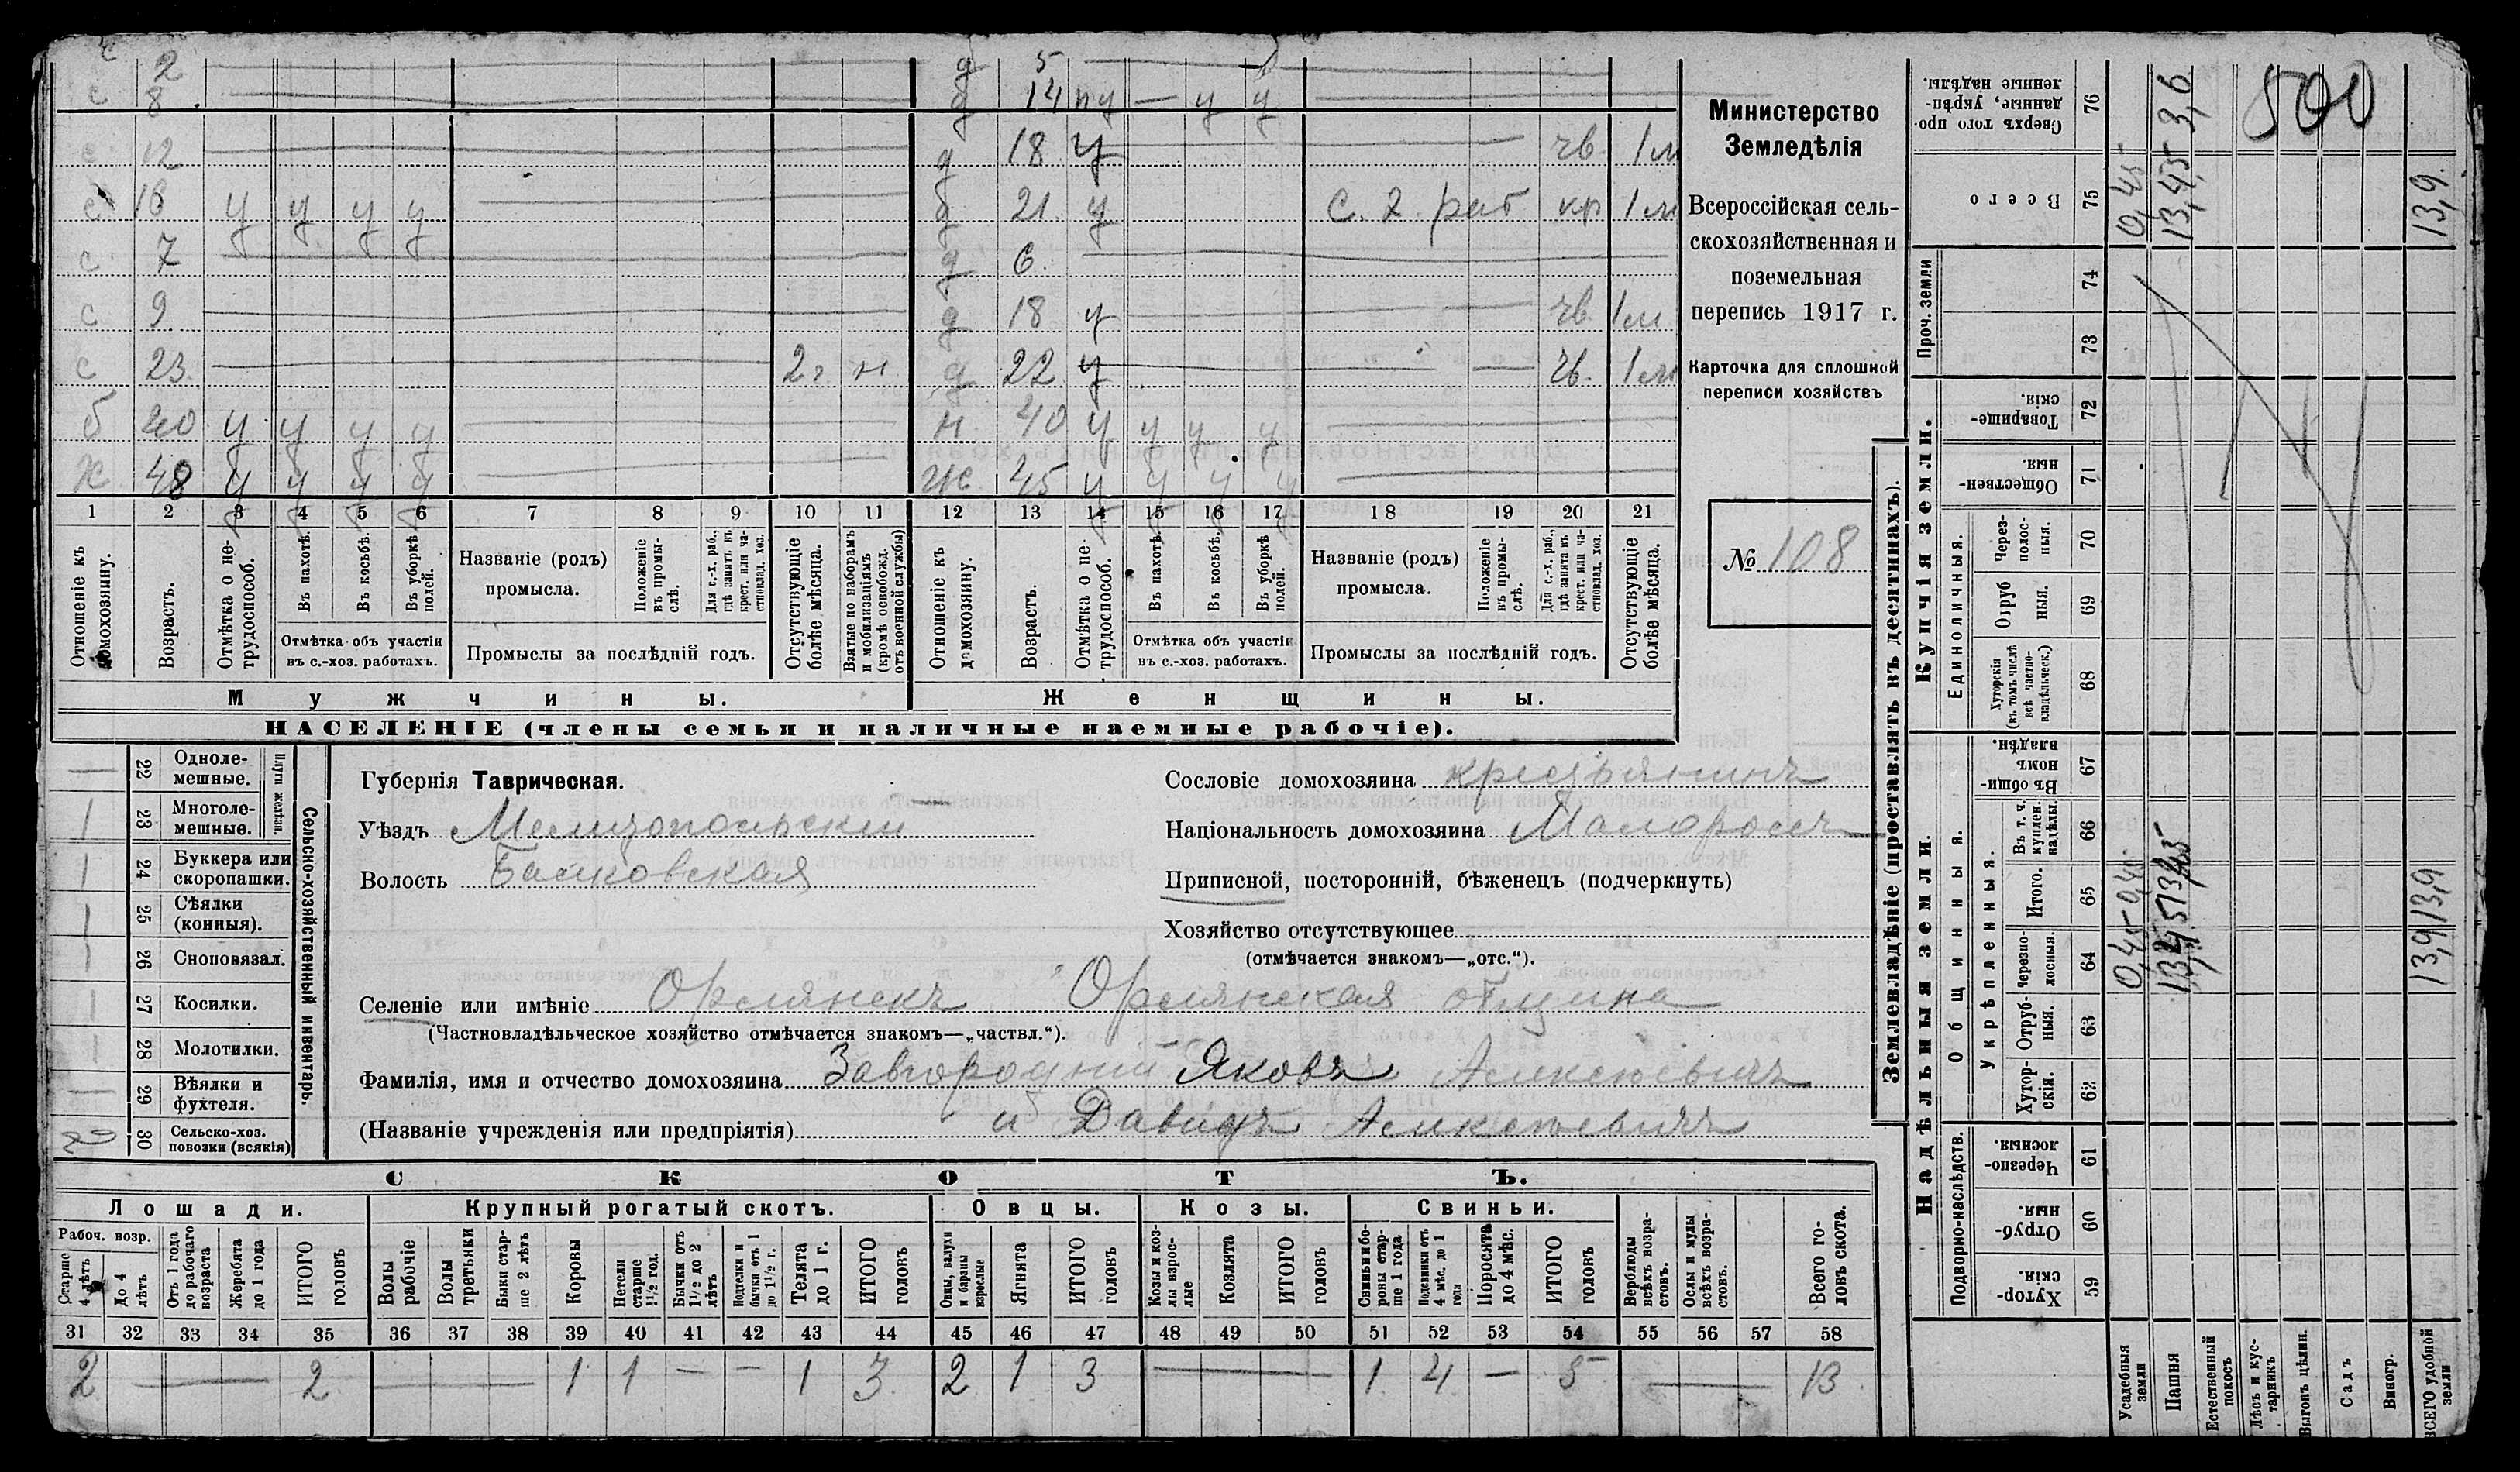 с 2 д 5
с 8 д 14 пу — у у
с 12 д 18 у — чв 1м
с 16 у у у у — д 21 у с. х. раб кр 1м
с 7 — д 6
с 9 — д 18 у — чв 1м
с 23 — 2г н д 22 у — чв. 1м
б 40 у у у у — н 40 у у у у —
х 48 у у у у — ж 45 у у у у —
1 2 3 4 5 6 7 8 9 10 11 12 13 14 15 16 17 18 19 20 21
Отношеніе къ домохозяину.
Возрастъ.
Отмѣтка о нетрудоспособ.
Въ пахотѣ.
Въ косьбѣ.
Въ уборкѣ полей.
Отмѣтка объ участіи
въ с.-хоз. работахъ.
Названіе (родъ)
промысла.
Положеніе въ промыслѣ.
Для с.-х. раб., гдѣ занятъ въ крест. или частновлад. хоз.
Промыслы за послѣдній годъ.
Отсутствующіе болѣе мѣсяца.
Взятые по наборамъ и мобилизаціямъ (кромѣ освобожд. отъ военной службы)
Отношеніе къ домохозяину.
Возрастъ.
Отмѣтка о не трудоспособ.
Въ пахотѣ.
Въ косьбѣ.
Въ уборкѣ полей.
Отмѣтка объ участіи
въ с.-хоз. работахъ.
Названіе (родъ)
промысла.
Положеніе въ промыслѣ.
Для с.-х. раб., гдѣ занята въ крест. или частновлад. хоз.
Промыслы за послѣдній годъ.
Отсутствующіе болѣе мѣсяца.
Мужчины.
Женщины.
НАСЕЛЕНІЕ (члены семьи и наличные наемные рабочіе).
Министерство
Земледѣлія
Всероссійская сель-
скохозяйственная и
поземельная
перепись 1917 г.
Карточка для сплошной
переписи хозяйствъ
№ 108
Сельско-хозяйственный инвентарь.
Плуги желѣзн.
— 22 Однолемешные.
1 23 Многолемешные.
1 24 Буккера или скоропашки.
1 25 Сѣялки (конныя).
1 26 Сноповязал.
1 27 Косилки.
1 28 Молотилки.
— 29 Вѣялки и фухтеля.
30 Сельско-хоз. повозки (всякія)
Губернія Таврическая.
Уѣздъ Мелитопольскій
Волость Балковская
Сословіе домохозяина крестьянинъ
Національность домохозяина Малороссъ
Приписной, посторонній, бѣженецъ (подчеркнуть)
Хозяйство отсутствующее
(отмѣчается знакомъ—„отс.“).
Селеніе или имѣніе Орлянскъ Орлянская община
(Частновладѣльческое хозяйство отмѣчается знакомъ—„частвл.“).
Фамилія, имя и отчество домохозяина Завгородній Яковъ Алексѣевичъ
(Названіе учрежденія или предпріятія) и Давидъ Алексѣевичъ
СКОТЪ.
Лошади. Крупный рогатый скотъ. Овцы. Козы. Свиньи.
Рабоч. возр.
Старше 4 лѣтъ
До 4 лѣтъ
Отъ 1 года до рабочаго возраста
Жеребята до 1 года
ИТОГО головъ
Волы рабочіе
Волы третьяки
Быки старше 2 лѣтъ
Коровы
Нетели старше 1½ год.
Бычки отъ 1½ до 2 лѣтъ
Подтелки и бычки отъ 1 до 1½ г.
Телята до 1 г.
ИТОГО головъ
Овцы, валухи и бараны взрослые
Ягнята
ИТОГО головъ
Козы и козлы взрослые
Козлята
ИТОГО головъ
Свиньи и боровы старше 1 года
Подсвинки отъ 4 мѣс. до 1 года
Поросята до 4 мѣс.
ИТОГО головъ
Верблюды всѣхъ возрастовъ.
Ослы и мулы всѣхъ возрастовъ.
Всего головъ скота.
31 32 33 34 35 36 37 38 39 40 41 42 43 44 45 46 47 48 49 50 51 52 53 54 55 56 57 58
2 — 2 — 1 1 — — 1 3 2 1 3 — 1 4 — 5 — 13
Землевладѣніе (проставлять въ десятинахъ).
Надѣльныя земли.
Купчія земли.
Проч. земли
Подворно-наслѣдств.
Общинныя.
Укрѣпленныя.
Единоличныя.
Хуторскія. 59
Отрубныя. 60
Черезполосныя 61
Хуторскія. 62
Отрубныя. 63
Черезполосныя. 64
Итого. 65
Въ т. ч. куплен. надѣлы. 66
Въ общинномъ владѣн. 67
Хуторскія (въ томъ числѣ всѣ частновладѣльческ.) 68
Отрубныя. 69
Черезполосныя. 70
Общественныя. 71
Товарищескія. 72
73
74
Всего 75
Сверхъ того проданные, укрѣпленные надѣлы. 76
Усадебныя земли 0,45 0,45 0,45
Пашня 13,45 13,45 13,45 3,6
Естественный покосъ
Лѣсъ и кустарникъ
Выгонъ цѣлин.
Садъ
Виногр.
ВСЕГО удобной земли 13,9 13,9 13,9
500